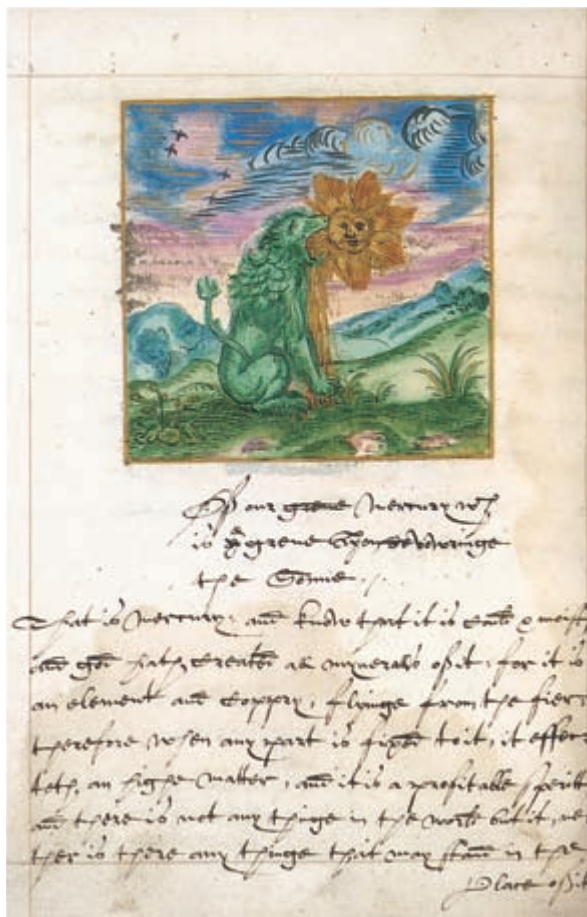 Of our grene Mercury wch
is ye grene Lyon devowringe
the Sonne
That is Mercury, and know that it is could & moist
and god hath created al myneralls of it, for it is
an element and Coppry, flyinge from the fier,
therefore when any part is fixed to it, it effec-
teth an highe matter, and it is a profitable spirit
and there is not any thinge in the world but it, ne
ther is there any thinge that may stand in the
Place of it